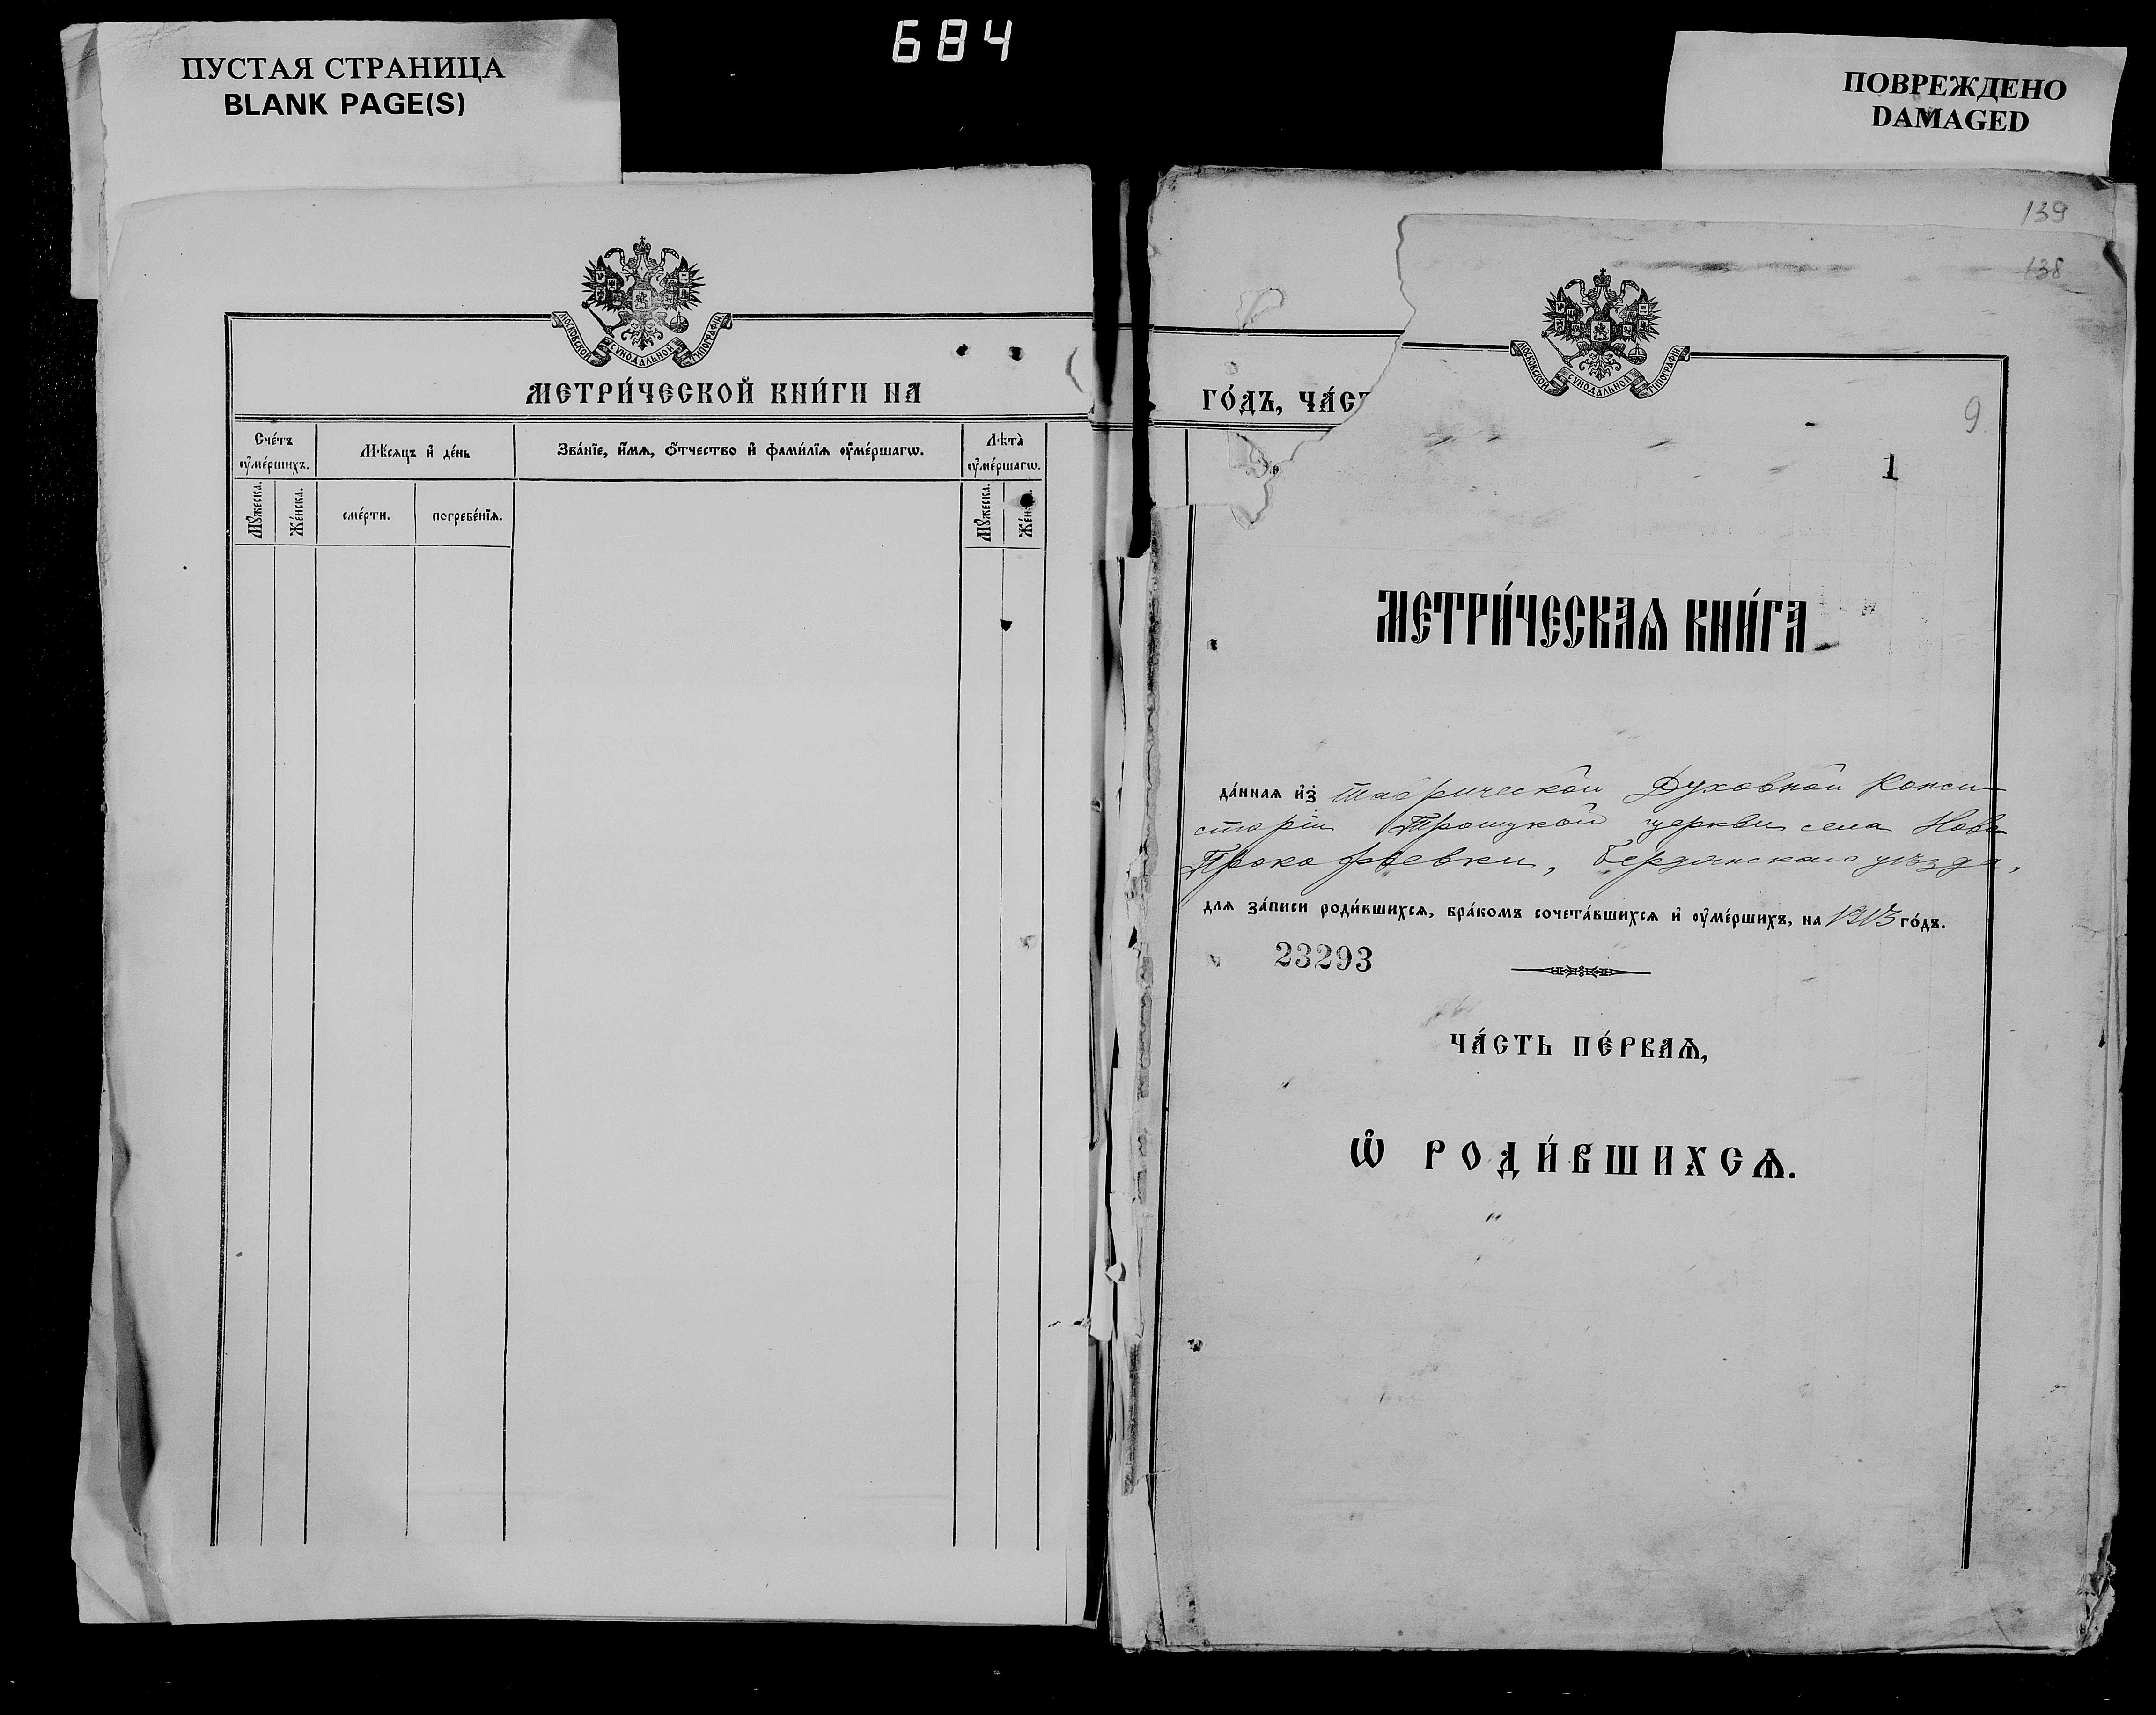 684
ПУСТАЯ СТРАНИЦА
BLANK PAGE(S)
ПОВРЕЖДЕНО
DAMAGED
МОСКОВСКОЙ СѴНОДАЛЬНОЙ ТИПОГРАФІИ
МЕТРИ́ЧЕСКОЙ КНИ́ГИ НА
Сче́тъ оу҆ме́ршихъ.
Мѣ́сяцъ и҆ де́нь
Зва́нїе, и҆́мѧ, ѻ҆́тчество и҆ фами́лїѧ оу҆ме́ршагѡ.
Лѣ́та оу҆ме́ршагѡ.
Мꙋ́жеска.
Же́нска.
сме́рти.
погребе́нїѧ.
Мꙋ́жеска.
Же́н
139
138
ГО́ДЪ, ЧА́СТ
МОСКОВСКОЙ СѴНОДАЛЬНОЙ ТИПОГРАФІИ
9
1
МЕТРИ́ЧЕСКАѦ КНИ́ГА
да́ннаѧ и҆з̾ Таврической Духовной Конси-
сторіи Троицкой церкви села Ново
Прокофьевки, Бердянскаго уѣзда,
длѧ за́писи роди́вшихсѧ, бра́комъ сочета́вшихсѧ и҆ оу҆ме́ршихъ, на 1913 го́дъ.
23293
ЧА́СТЬ ПЕ́РВАѦ,
Ѡ҆ РОДИ́ВШИХСѦ.